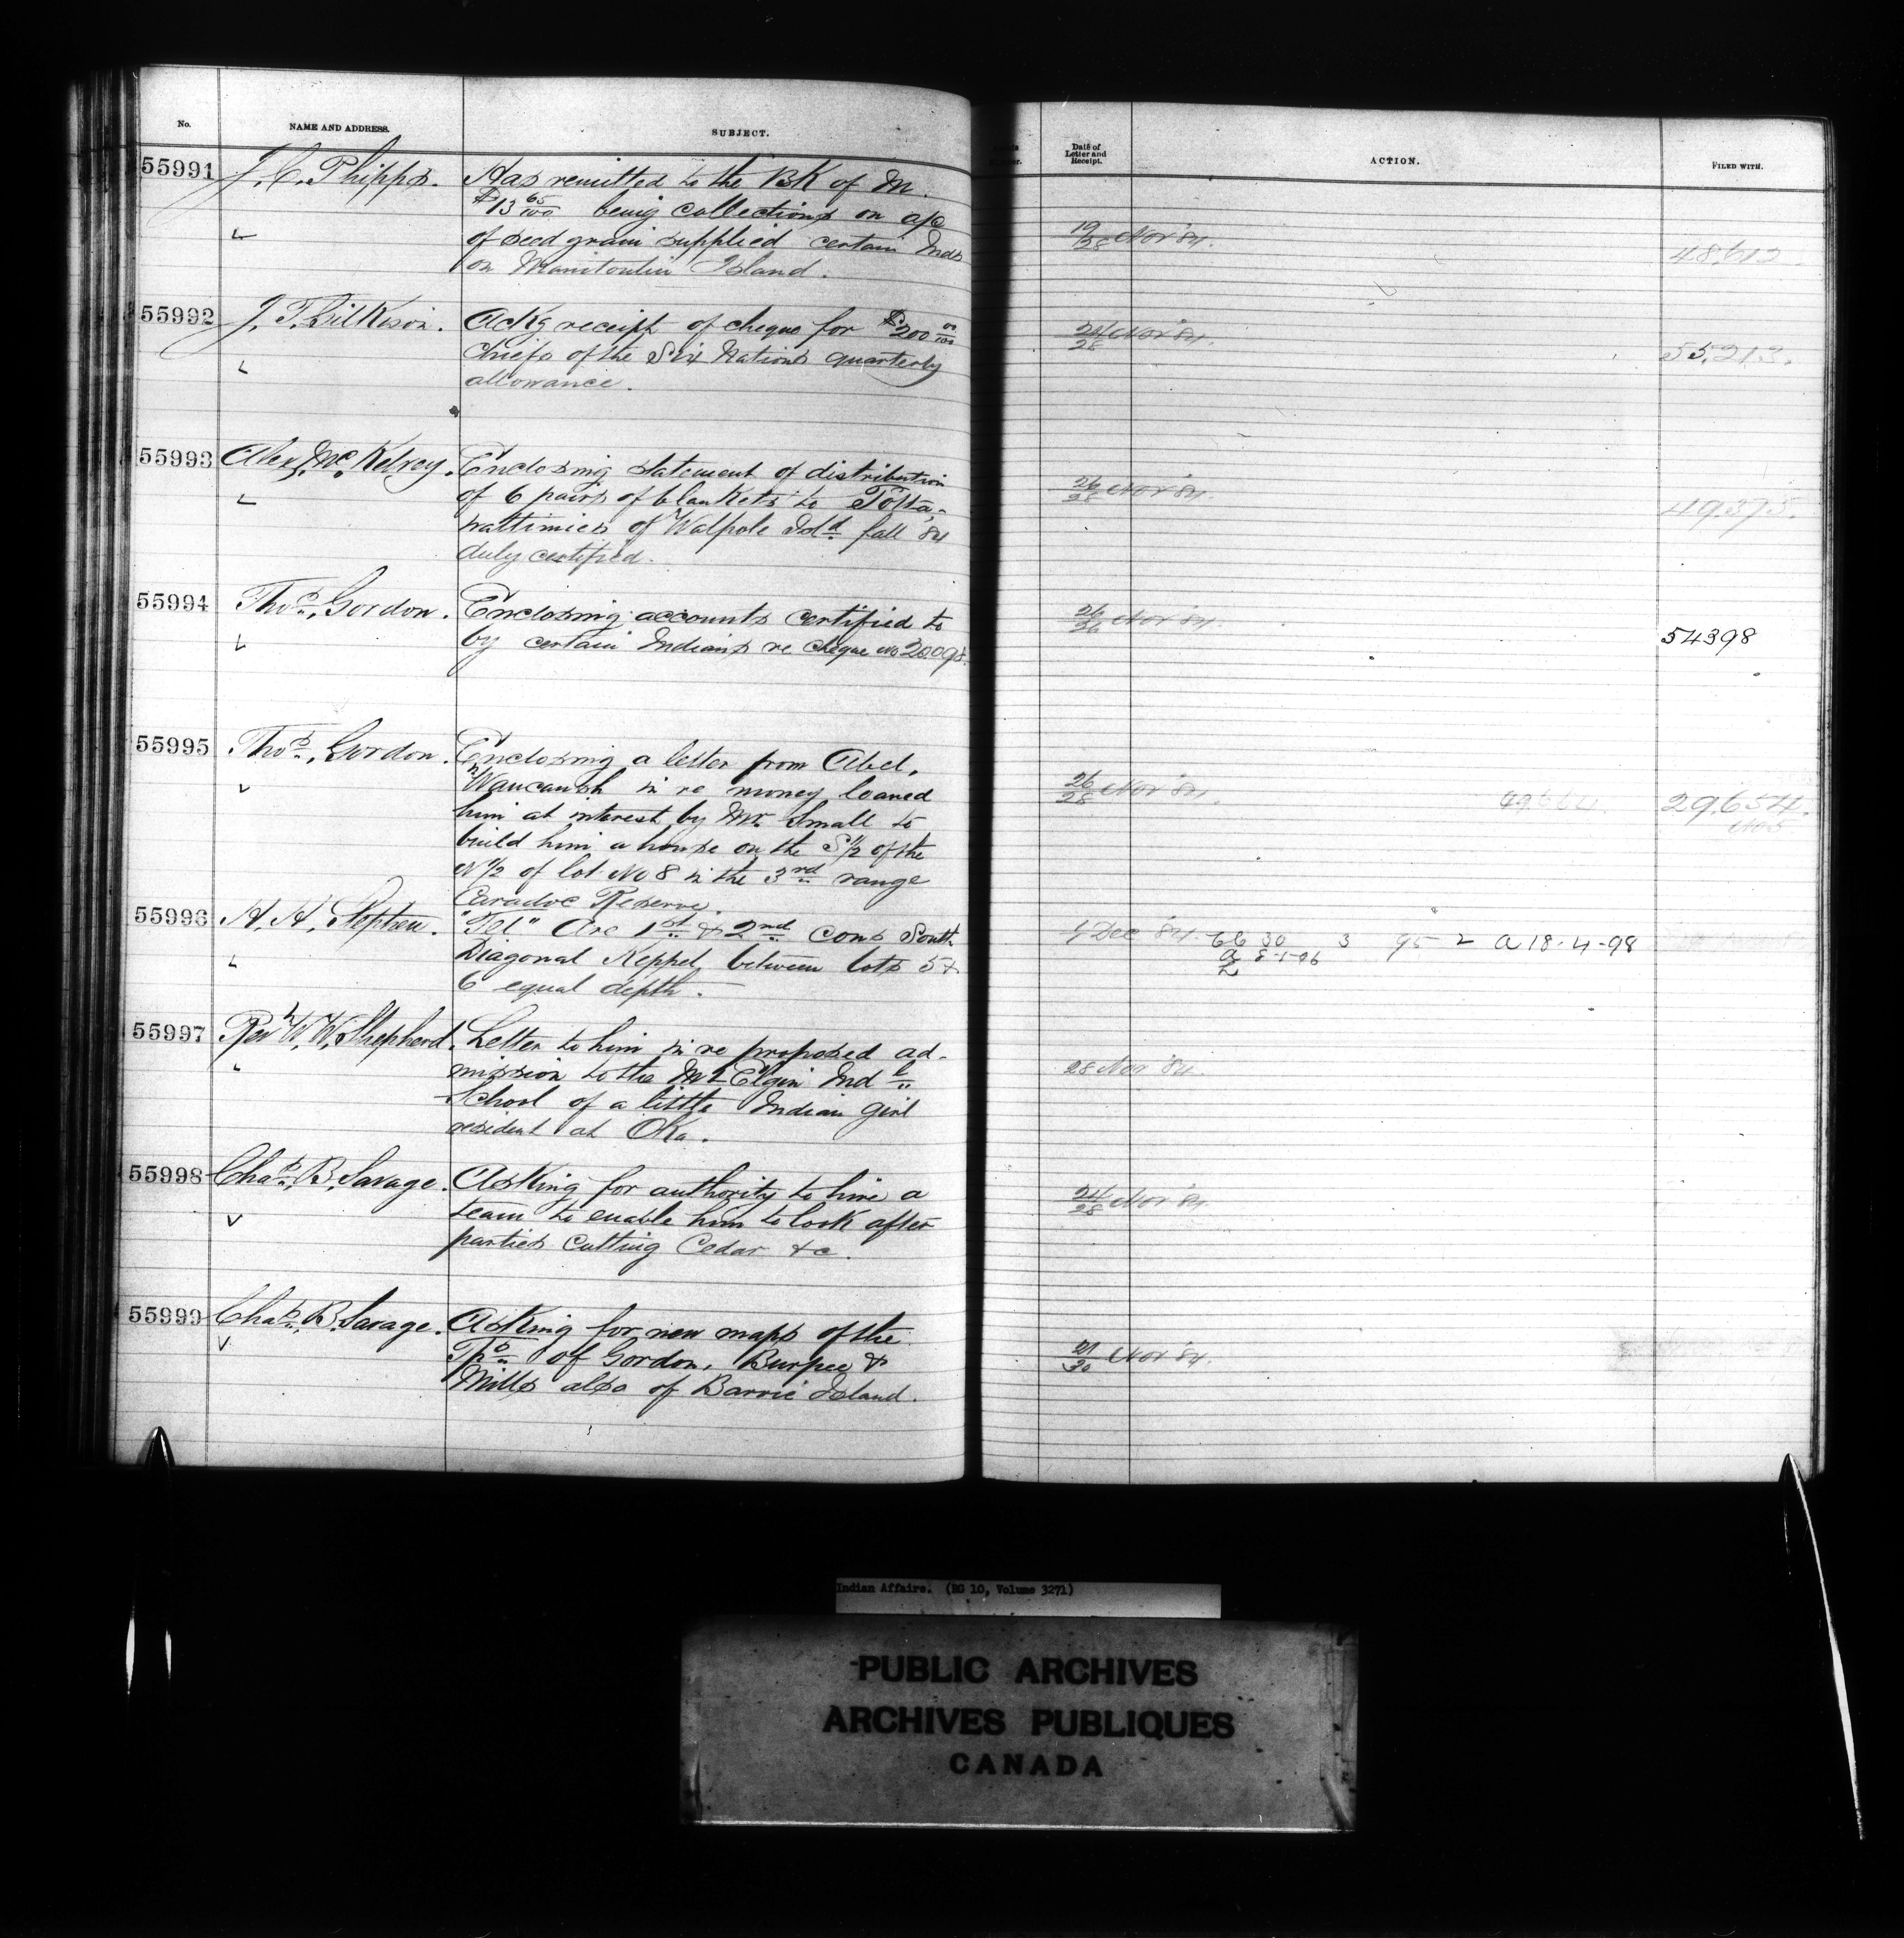 No.
NAME AND ADDRESS.
SUBJECT.
Date of
Letter and
Receipt.
ACTION.
FILED WITH.
55991
J. C. Phipps.
Has remitted to the BK of M.
$13 65/100 being collections on a/c
of seed grain supplied certain Inds
on Manitoulin Island.
19/28 Nov '84.
48,612
55992
J. T. Gilkison.
Ackg receipt of cheque for $200 00/100
Chiefs of the Six Nations quarterly
allowance.
24/28 Nov '84.
55,213.
55993
Alex. McKelvey.
Enclosing statement of distribution
of 6 pairs of blankets to Potta-
wattimies of Walpole Isld fall '84
duly certified.
26/28 Nov '84.
49,375.
55994
Thos. Gordon.
Enclosing accounts certified to
by certain Indians re cheque No 20098.
26/26 Nov '84.
54398
55995
Thos. Gordon.
Enclosing a letter from Abel,
Waucaush in re money loaned
him at interest by Mr. Small to
build him a house on the S 1/2 of the
N 1/2 of lot No 8 in the 3rd range
Caradoc Reserve.
26/28 Nov '84.
29,654.
No 5.
55996
A. H. Stephen.
"Tel" Are 1st & 2nd cons South
Diagonal Keppel, between lots 5 &
6 equal depth.
4 Dec '84.
66 30 3 95 2 a 18-4-98
a 8-5-96
55997
Rev W. W. Shepherd.
Letter to him in re proposed ad-
mission to the Mt Elgin Indl
School of a little Indian girl
resident at Oka.
28 Nov '84
55998
Chas. B. Savage.
Asking for authority to hire a
team to enable him to look after
parties cutting Cedar &c.
24/28 Nov '84.
55999
Chas. B. Savage.
Asking for new maps of the
Tps of Gordon, Burpee &
Mills also of Barrie Island.
21/30 Nov '84.
Indian Affairs. (RG 10, Volume 3271)
PUBLIC ARCHIVES
ARCHIVES PUBLIQUES
CANADA